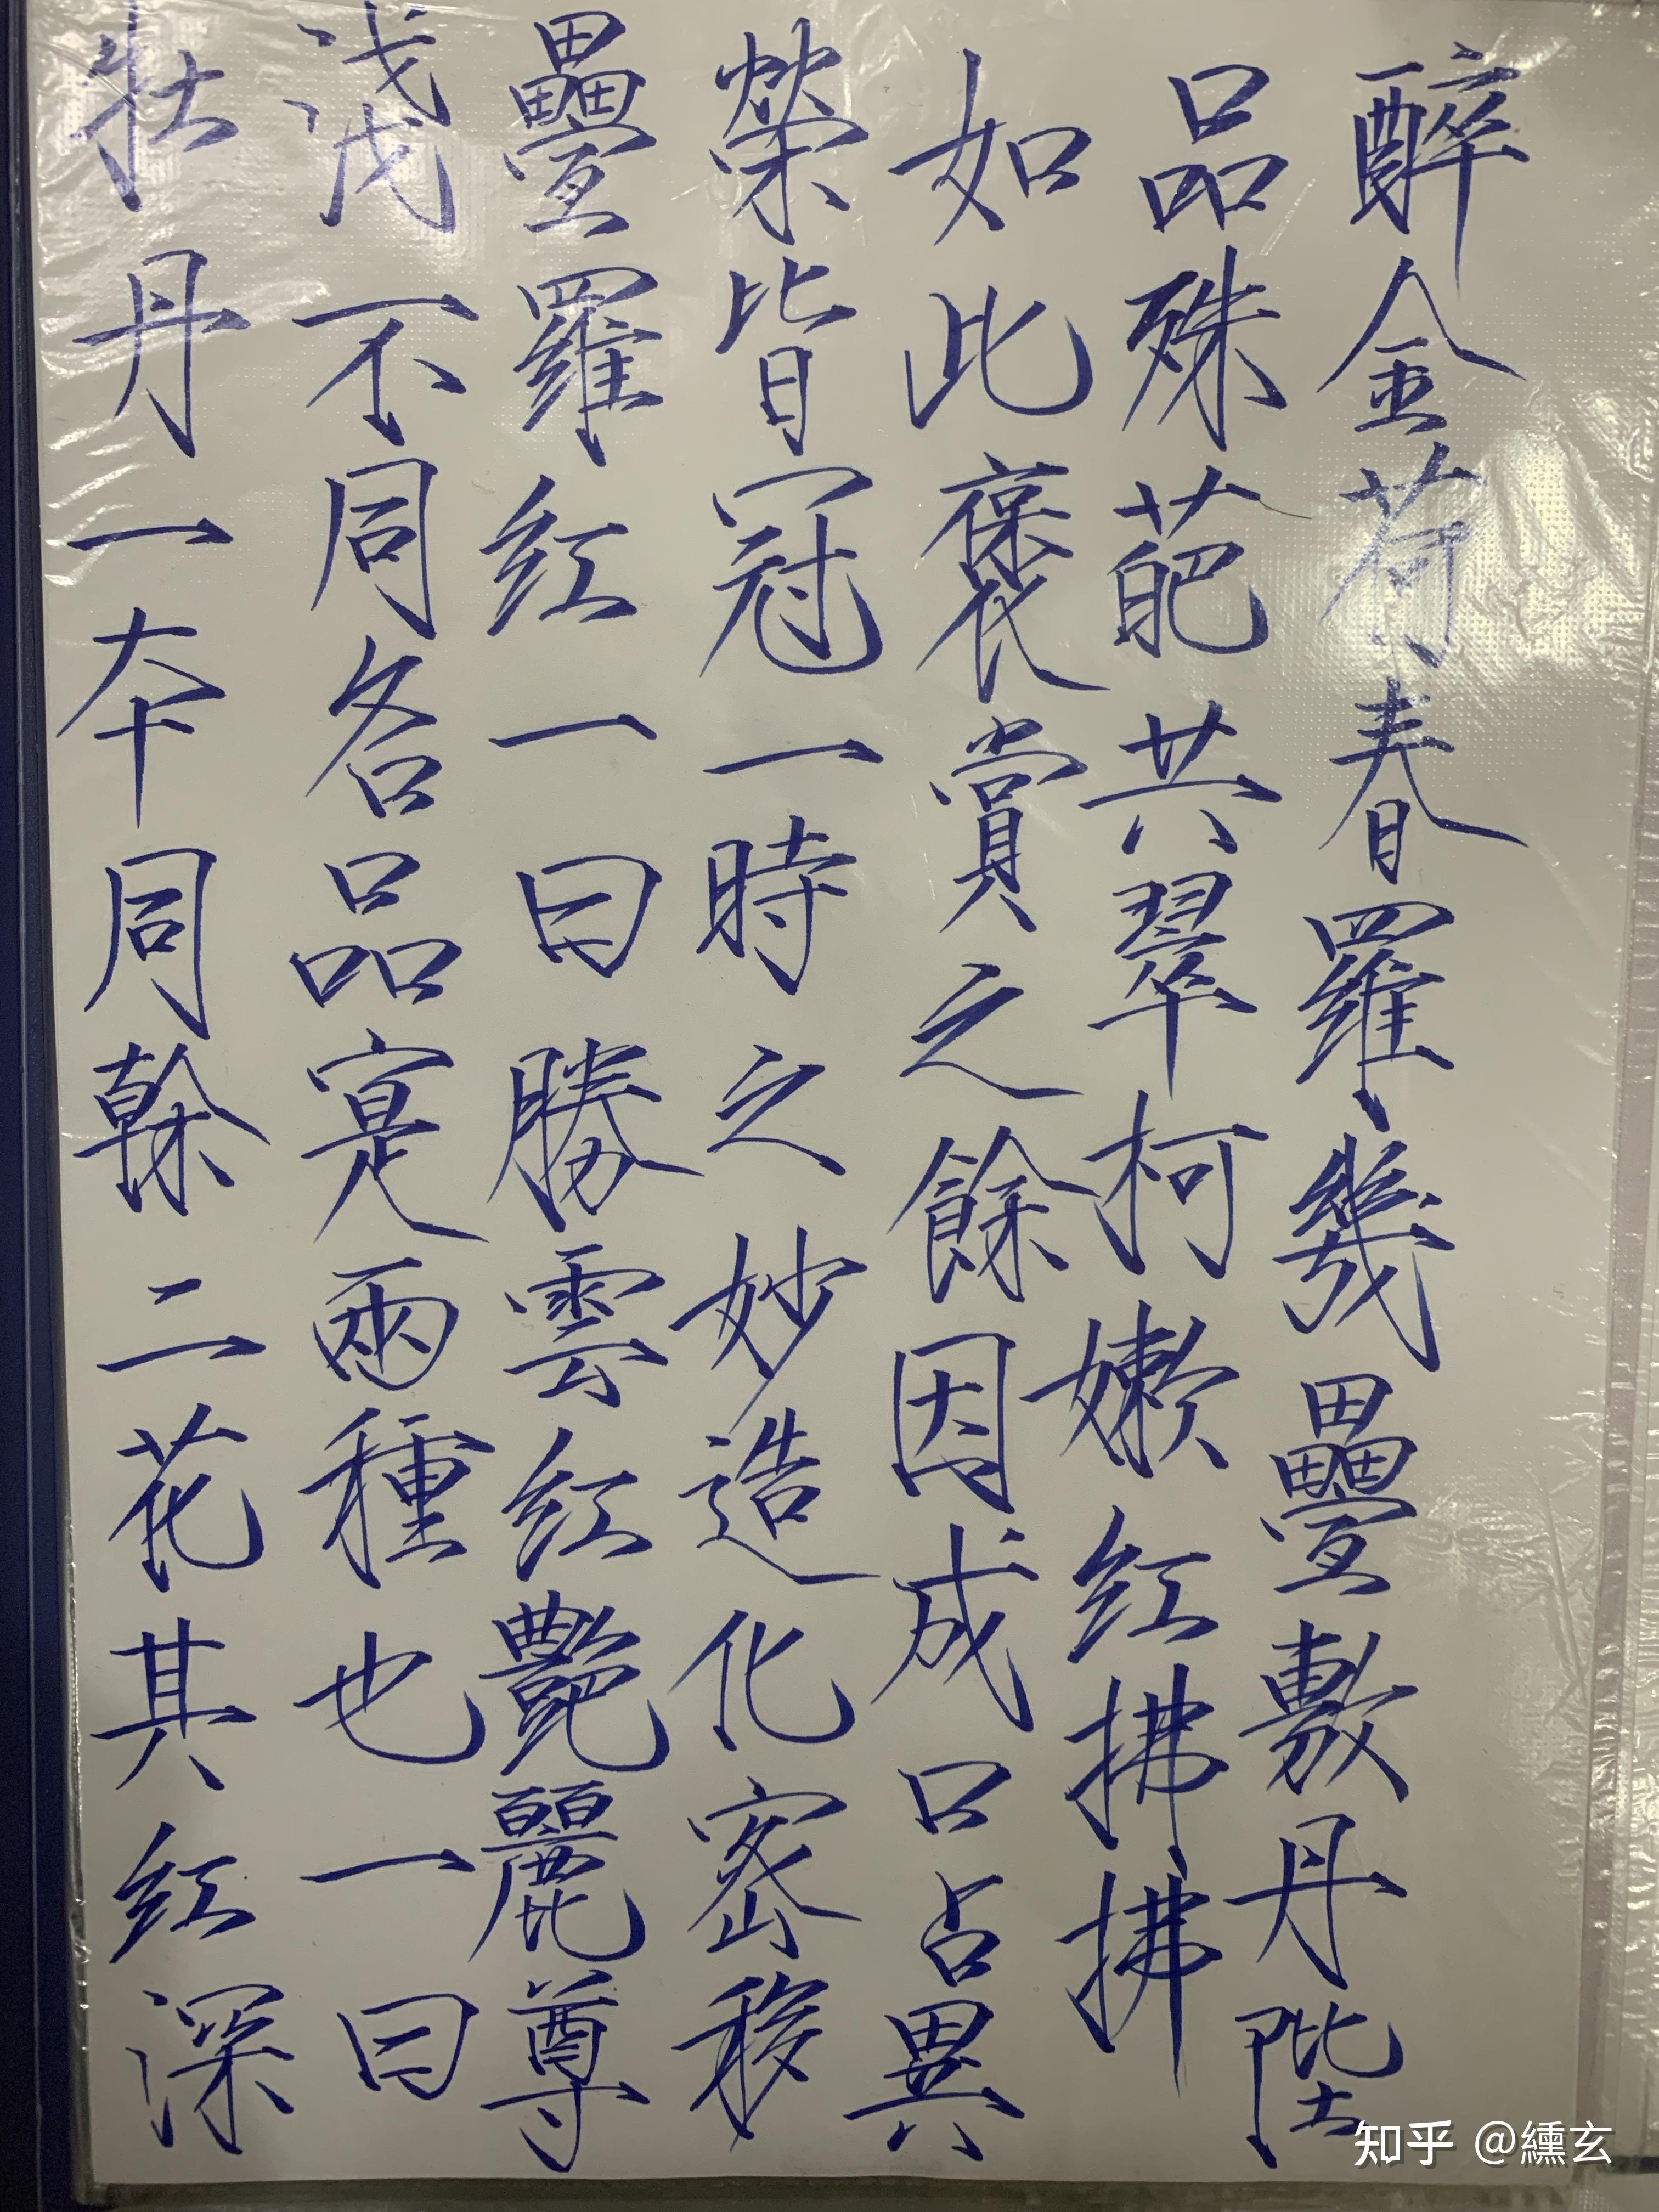 牡丹一本同幹二花其紅深
淺不同名品寔兩種也一曰
疊羅紅一曰勝雲紅艷麗尊
榮皆冠一時之妙造化密移
如此褒賞之餘因成口占異
品殊葩共翠柯嫩紅拂拂
醉金荷春羅幾疊敷丹陛
知乎 @纁玄